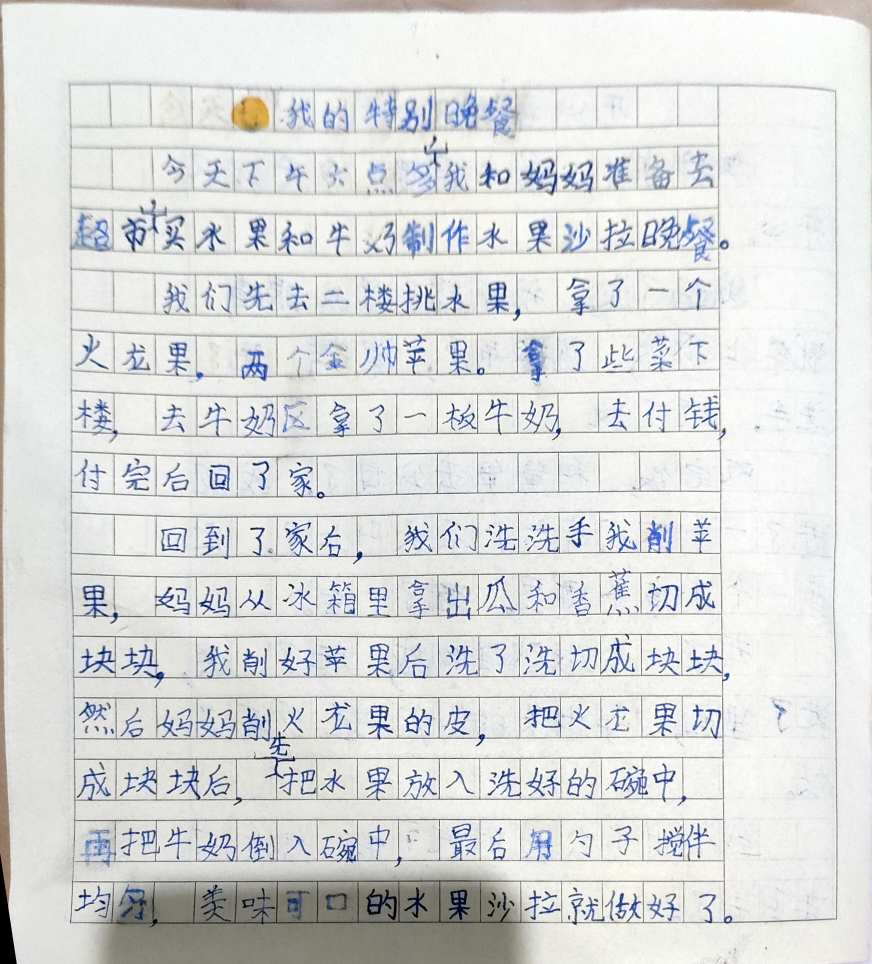 我的特别晚餐
今天下午六点多，我和妈妈准备去
超市，买水果和牛奶制作水果沙拉晚餐。
我们先去二楼挑水果，拿了一个
火龙果，两个金帅苹果。拿了些菜下
楼，去牛奶区拿了一板牛奶，去付钱，
付完后回了家。
回到了家后，我们洗洗手我削苹
果，妈妈从冰箱里拿出瓜和香蕉切成
块块，我削好苹果后洗了洗切成块块，
然后妈妈削火龙果的皮，把火龙果切
成块块后，先把水果放入洗好的碗中，
再把牛奶倒入碗中，最后用勺子搅伴
均匀，美味可口的水果沙拉就做好了。